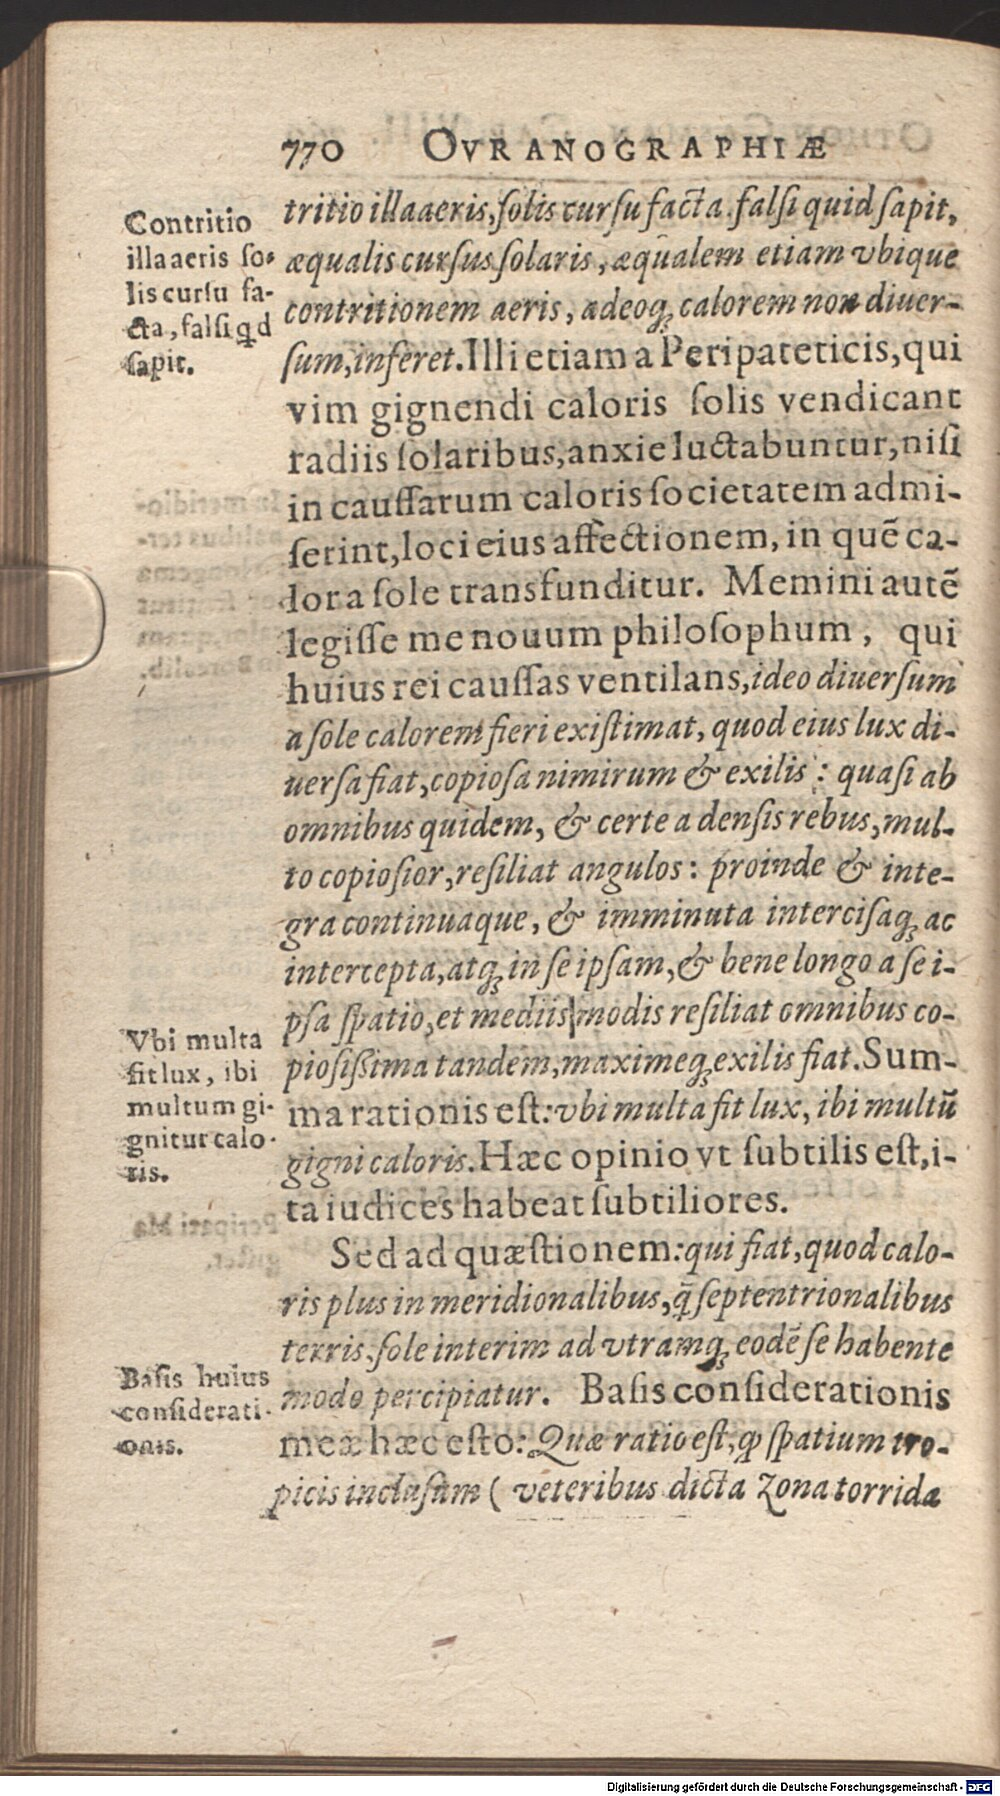 770 OVRANOGRAPHIÆ
Contritio
illa aeris so-
lis cursu fa-
cta, falsi qd
sapit.
tritio illa aeris, solis cursu facta falsi quid sapit,
æqualis cursus solaris, æqualem etiam vbique
contritionem aeris, adeoq; calorem non diuer-
sum, inferet. Illi etiam a Peripateticis, qui
vim gignendi caloris solis vendicant
radiis solaribus, anxie luctabuntur, nisi
in caussarum caloris societatem admi-
serint, loci eius affectionem, in quẽ ca-
lor a sole transfunditur. Memini autẽ
legisse me nouum philosophum, qui
huius rei caussas ventilans, ideo diuersum
a sole calorem fieri existimat, quod eius lux di-
uersa fiat, copiosa nimirum & exilis: quasi ab
omnibus quidem, & certe a densis rebus, mul-
to copiosior, resiliat angulos: proinde & inte-
gra continuaque, & imminuta intercisaq; ac
intercepta, atq; in se ipsam, & bene longo a se i-
psa spatio, et mediis modis resiliat omnibus co-
piosissima tandem, maximeq; exilis fiat. Sum-
ma rationis est: vbi multa fit lux, ibi multũ
gigni caloris. Hæc opinio vt subtilis est, i-
ta iudices habeat subtiliores.
Vbi multa
fit lux, ibi
multum gi-
gnitur calo-
ris.
Sed ad quæstionem: qui fiat, quod calo-
ris plus in meridionalibus, q̃ septentrionalibus
terris, sole interim ad vtramq; eodẽ se habente
modo percipiatur. Basis considerationis
meæ hæc esto: Quæ ratio est, ꝙ spatium tro-
picis inclusum ( veteribus dicta Zona torrida
Basis huius
considerati-
onis.
Digitalisierung gefördert durch die Deutsche Forschungsgemeinschaft - DFG